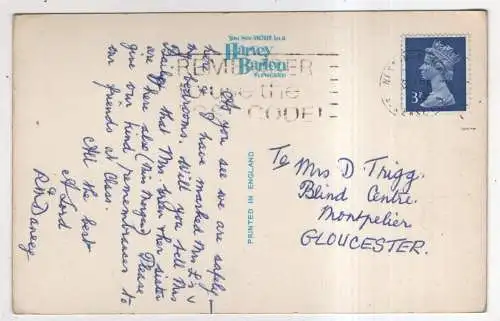 You see MORE in a
Harvey
Barton
REMEMBER
use the
POST CODE!
3P
As you see we are safely
here. I have marked Mrs L's &
my bedrooms. Will you tell Mrs
that Mrs & her sister
are here also (Miss Morgan) Please
give our kind remembrances to
our friends at Class.
All the best
A Lord
PRINTED IN ENGLAND
To Mrs D Trigg.
Blind Centre.
Montpelier
GLOUCESTER.